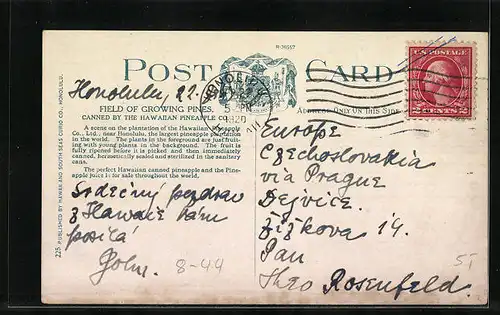 R-36557
POST CARD
Honolulu, 22.
HONOLULU
5 PM
1920
U.S. POSTAGE
2 CENTS 2
FIELD OF GROWING PINES.
CANNED BY THE HAWAIIAN PINEAPPLE CO.
ADDRESS ONLY ON THIS SIDE
A scene on the plantation of the Hawaiian Pineapple
Co., Ltd., near Honolulu, the largest pineapple plantation
in the world. The plants in the foreground are just fruit-
ing with young plants in the background. The fruit is
fully ripened before it is picked and then immediately
canned, hermetically sealed and sterilized in the sanitary
cans.
The perfect Hawaiian canned pineapple and the Pine-
apple juice is for sale throughout the world.
Srdečný pozdrav
z Hawaie Vám
posílá
8-44
Europe
Czechoslovakia
via Prague
Dejvice.
Žižkova 14.
Pan
Theo Rosenfeld.
51
225 PUBLISHED BY HAWAII AND SOUTH SEAS CURIO CO., HONOLULU.